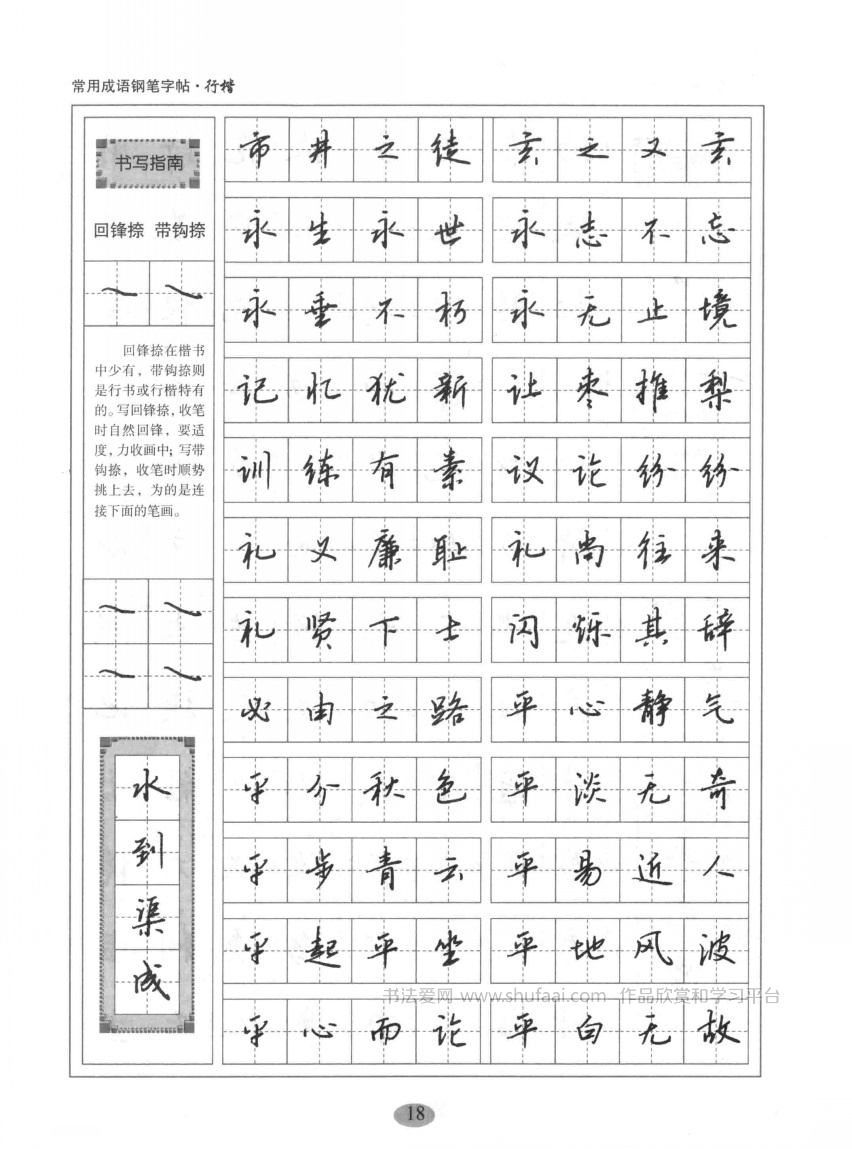 常用成语钢笔字帖·行楷
书写指南
回锋捺 带钩捺
回锋捺在楷书
中少有，带钩捺则
是行书或行楷特有
的。写回锋捺，收笔
时自然回锋，要适
度，力收画中；写带
钩捺，收笔时顺势
挑上去，为的是连
接下面的笔画。
水到渠成
市井之徒 玄之又玄
永生永世 永志不忘
永垂不朽 永无止境
记忆犹新 让枣推梨
训练有素 议论纷纷
礼义廉耻 礼尚往来
礼贤下士 闪烁其辞
必由之路 平心静气
平分秋色 平淡无奇
平步青云 平易近人
平起平坐 平地风波
平心而论 平白无故
书法爱网 www.shufaai.com 作品欣赏和学习平台
18